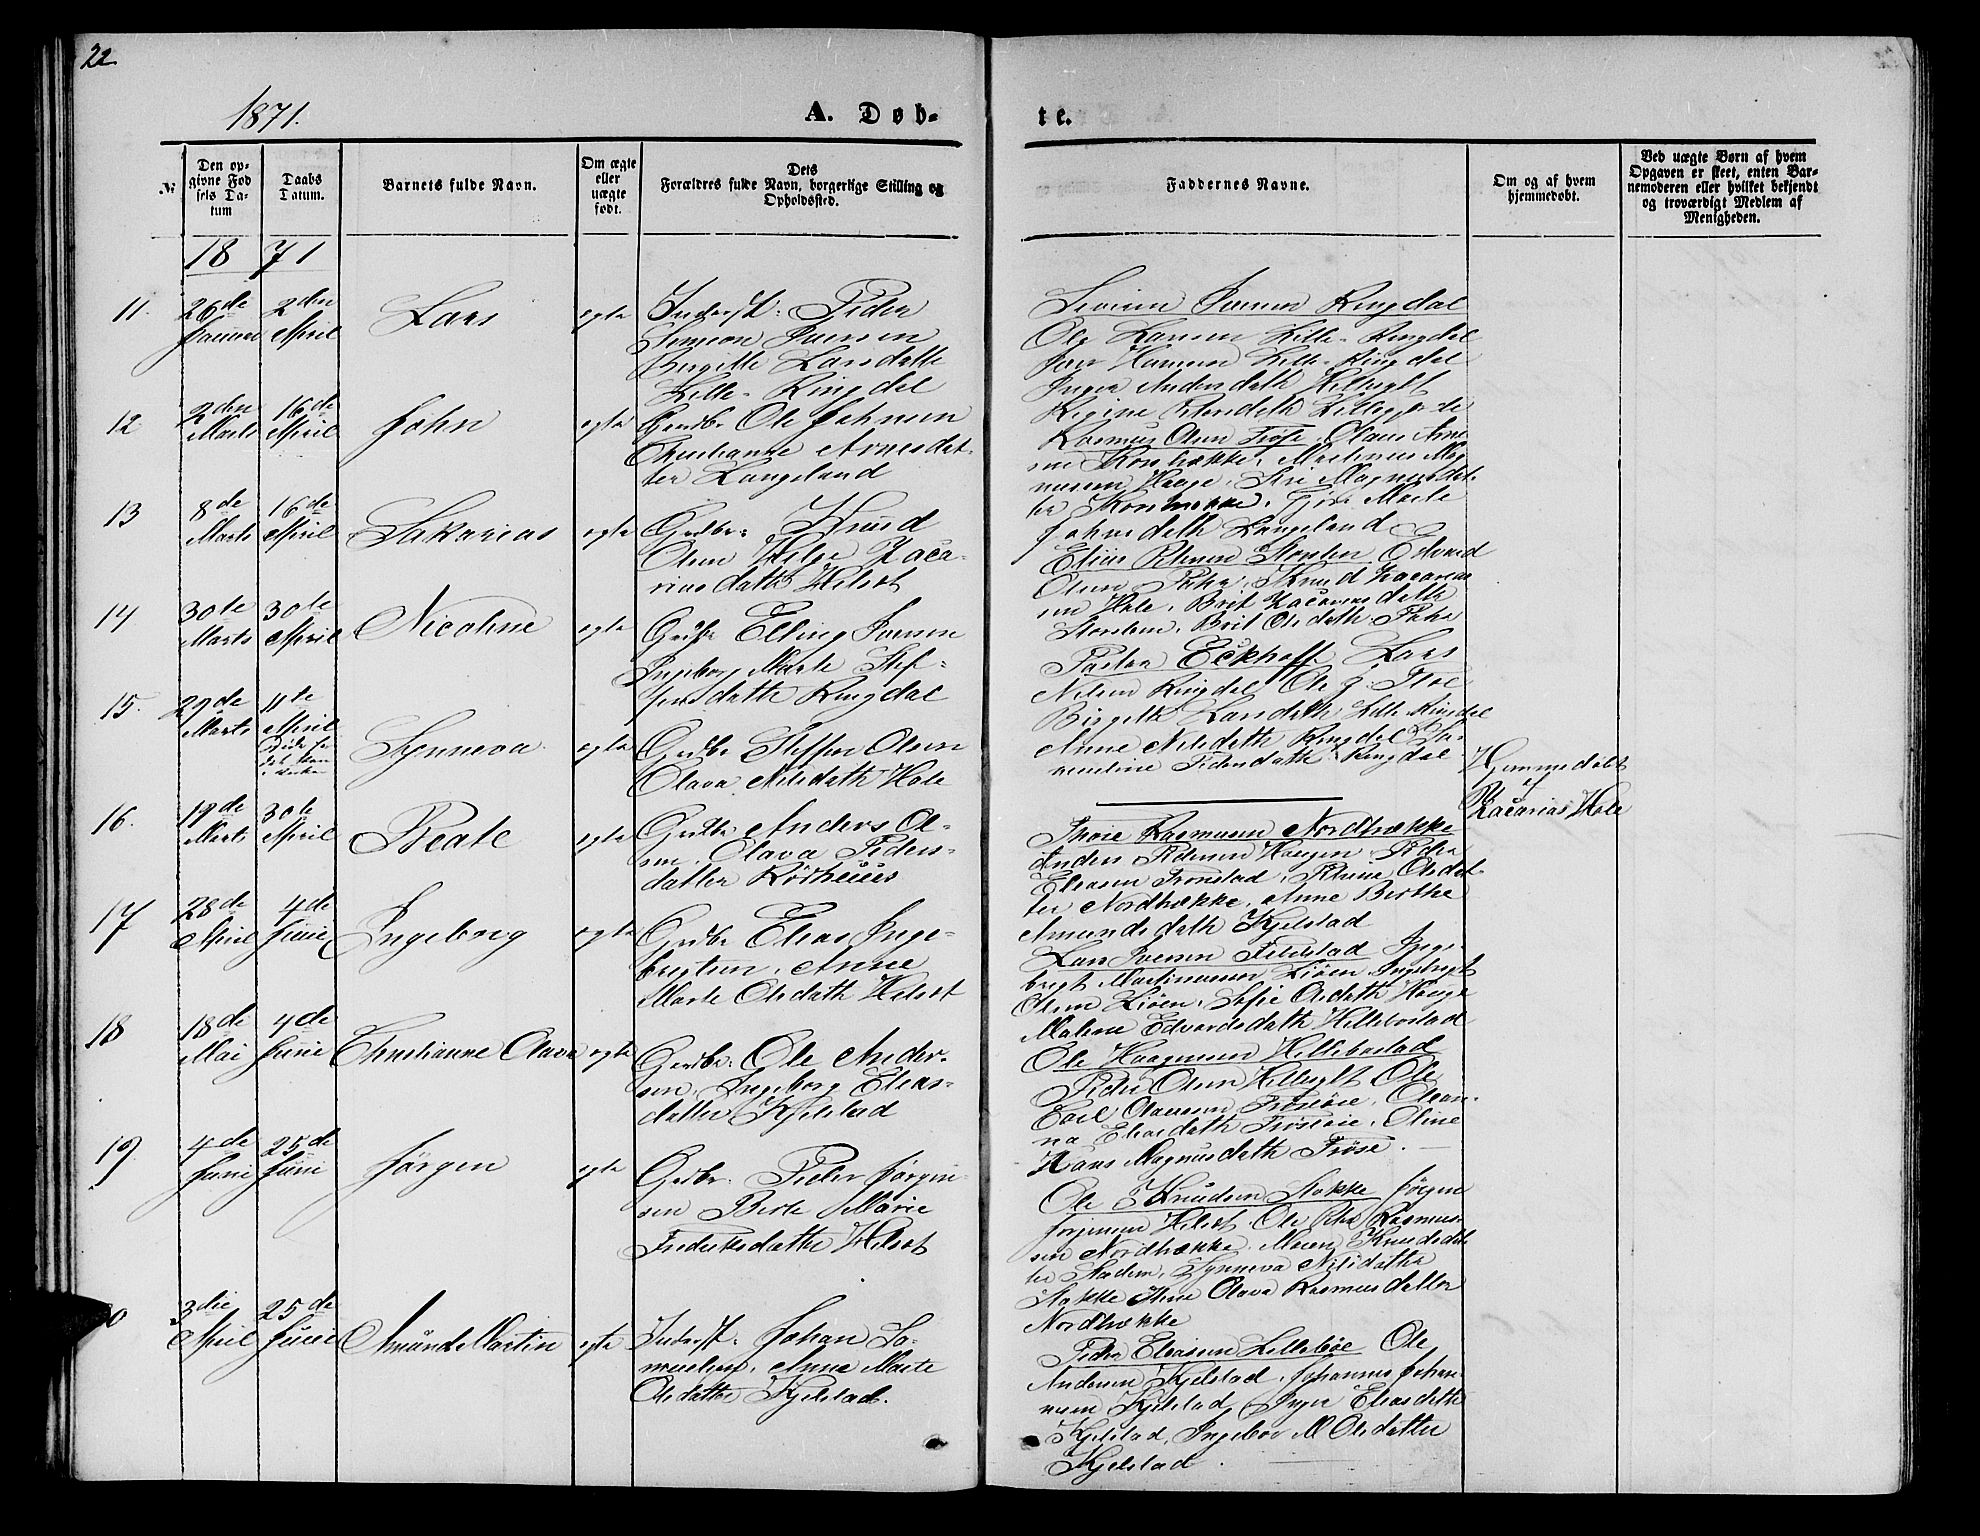 22.
1871.
A. Døb-
te.
№
Den opgivne Fødsels Datum
Daabs Datum.
Barnets fulde Navn.
Om ægte eller uægte født.
Dets Forældres fulde Navn, borgerlige Stilling og Opholdssted.
Faddernes Navne.
Om og af hvem hjemmedøbt.
Ved uægte Børn af hvem Opgaven er skeet, enten Barnemoderen eller hvilket bekjendt og troværdigt Medlem af Menigheden.
18 71
11.
26de
2den April
Lars
egte
Inderst: Peder
Simeon Iversen
Birgitte Larsdatte
Lille-Ringdal
Iversen Ringdal
Ole Larsen Lille-Ringdal
Iver Hansen Lille-Ringdal
Inger Andersdatte
Regine
12
2den Marts
16de April
John
egte
Grdbr Ole Johnsen
Christianne Arnesdat-
ter Langeland
Rasmus Olsen Frøse, Olaus Arne
sen Korsbrække, Martinus Mag
nusen Hauge, Siri Magnusdat
ter Korsbrække, Marte
Johnsdatte Langeland
13
8de Marts
16de April
Sakarias
egte
Grdbr: Knud
Olsen Helge Zaca-
riasdatte Helset
Elias Petersen Storslem Edvard
Olsen Knud Zacarias
sen Hole, Brit Zacariasdatte
Storslem, Brit Olsdatte
14
30te Marts
30te April
Nicoline
egte
Grdbr Elling Iversen
Ingeborg Marte Stef-
fensdatte Ringdal
Pastor Eckhoff Lars
Nilsen Ringdal Ole J.
Birgitte Larsdatte Lille-Ringdal
Anne Nilsdatte Ringdal
Pedersdatte Ringdal
15.
29de Marts
April
Synneva
egte
Grdbr Steffen Olsen
Olava Nilsdatte Hole
Hjemmedøbt
af
Zacarias Hole
16.
19de Marts
30te April
Beate
egte
Grdbr Anders Ol-
sen, Olava Peders-
datter Rødhuus
Rasmusen Nordbrække
Anders Pedersen Haugen Peder
Eliasen Tronstad, Petrine Olsdat
ter Nordbrække, Anne Birthe
Amundsdatte Kjelstad
17
28de April
4de Junie
Ingeborg
egte
Grdbr Elias Inge-
brigtsen, Anne
Marte Olsdatte Helset
Lars Iversen Fedelstad Inge-
brigt Martinusen Liøen, Ingebrigt
Olsen Liøen, Sofie Olsdatte Hauge
Malene Edvardsdatte Hellebostad
18
18de Mai
4de Junie
Christianne Olava
egte
Grdbr. Ole Ander-
sen, Ingeborg Elias-
datter Kjelstad
Ole Haagensen Hellebostad
Peder Olsen Ole
Carl Olausen Oleani-
na Eliasdatte Oline
Hans Magnusdatte Frøse.
19
4de Junie
25de Juni
Jørgen
egte
Grdbr. Peder Jørgen-
sen Berte Marie
Frederiksdatte Helset
Ole Knudsen Stokke Jørgen
Jørgensen Helset. Ole Peter Rasmus-
sen Nordbrække, Maren Knudsdat
ter Synneva Nilsdatte
Stokke Olava Rasmusdatter
Nordbrække
3die April
25de Junie
Amund Martin
egte
Inderst: Johan Sa-
muelsen, Anne Marte
Olsdatter Kjelstad.
Peder Eliasen Lillebøe Ole
Andersen Kjelstad, Johannes Johan-
nesen Kjelstad Inger Eliasdatte
Kjelstad, Ingebor M Olsdatter
Kjelstad.